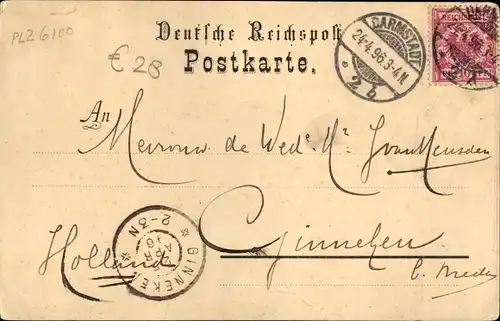 PLZ 6100
€ 28
Deutsche Reichspost
Postkarte.
DARMSTADT
24.4.96.3-4N.
* 2 b *
REICHSPOST
An
Mevrouw de Wed. H. J van Heusden
Ginneken
Holland
b. Breda
GINNEKEN
2-3N
APR